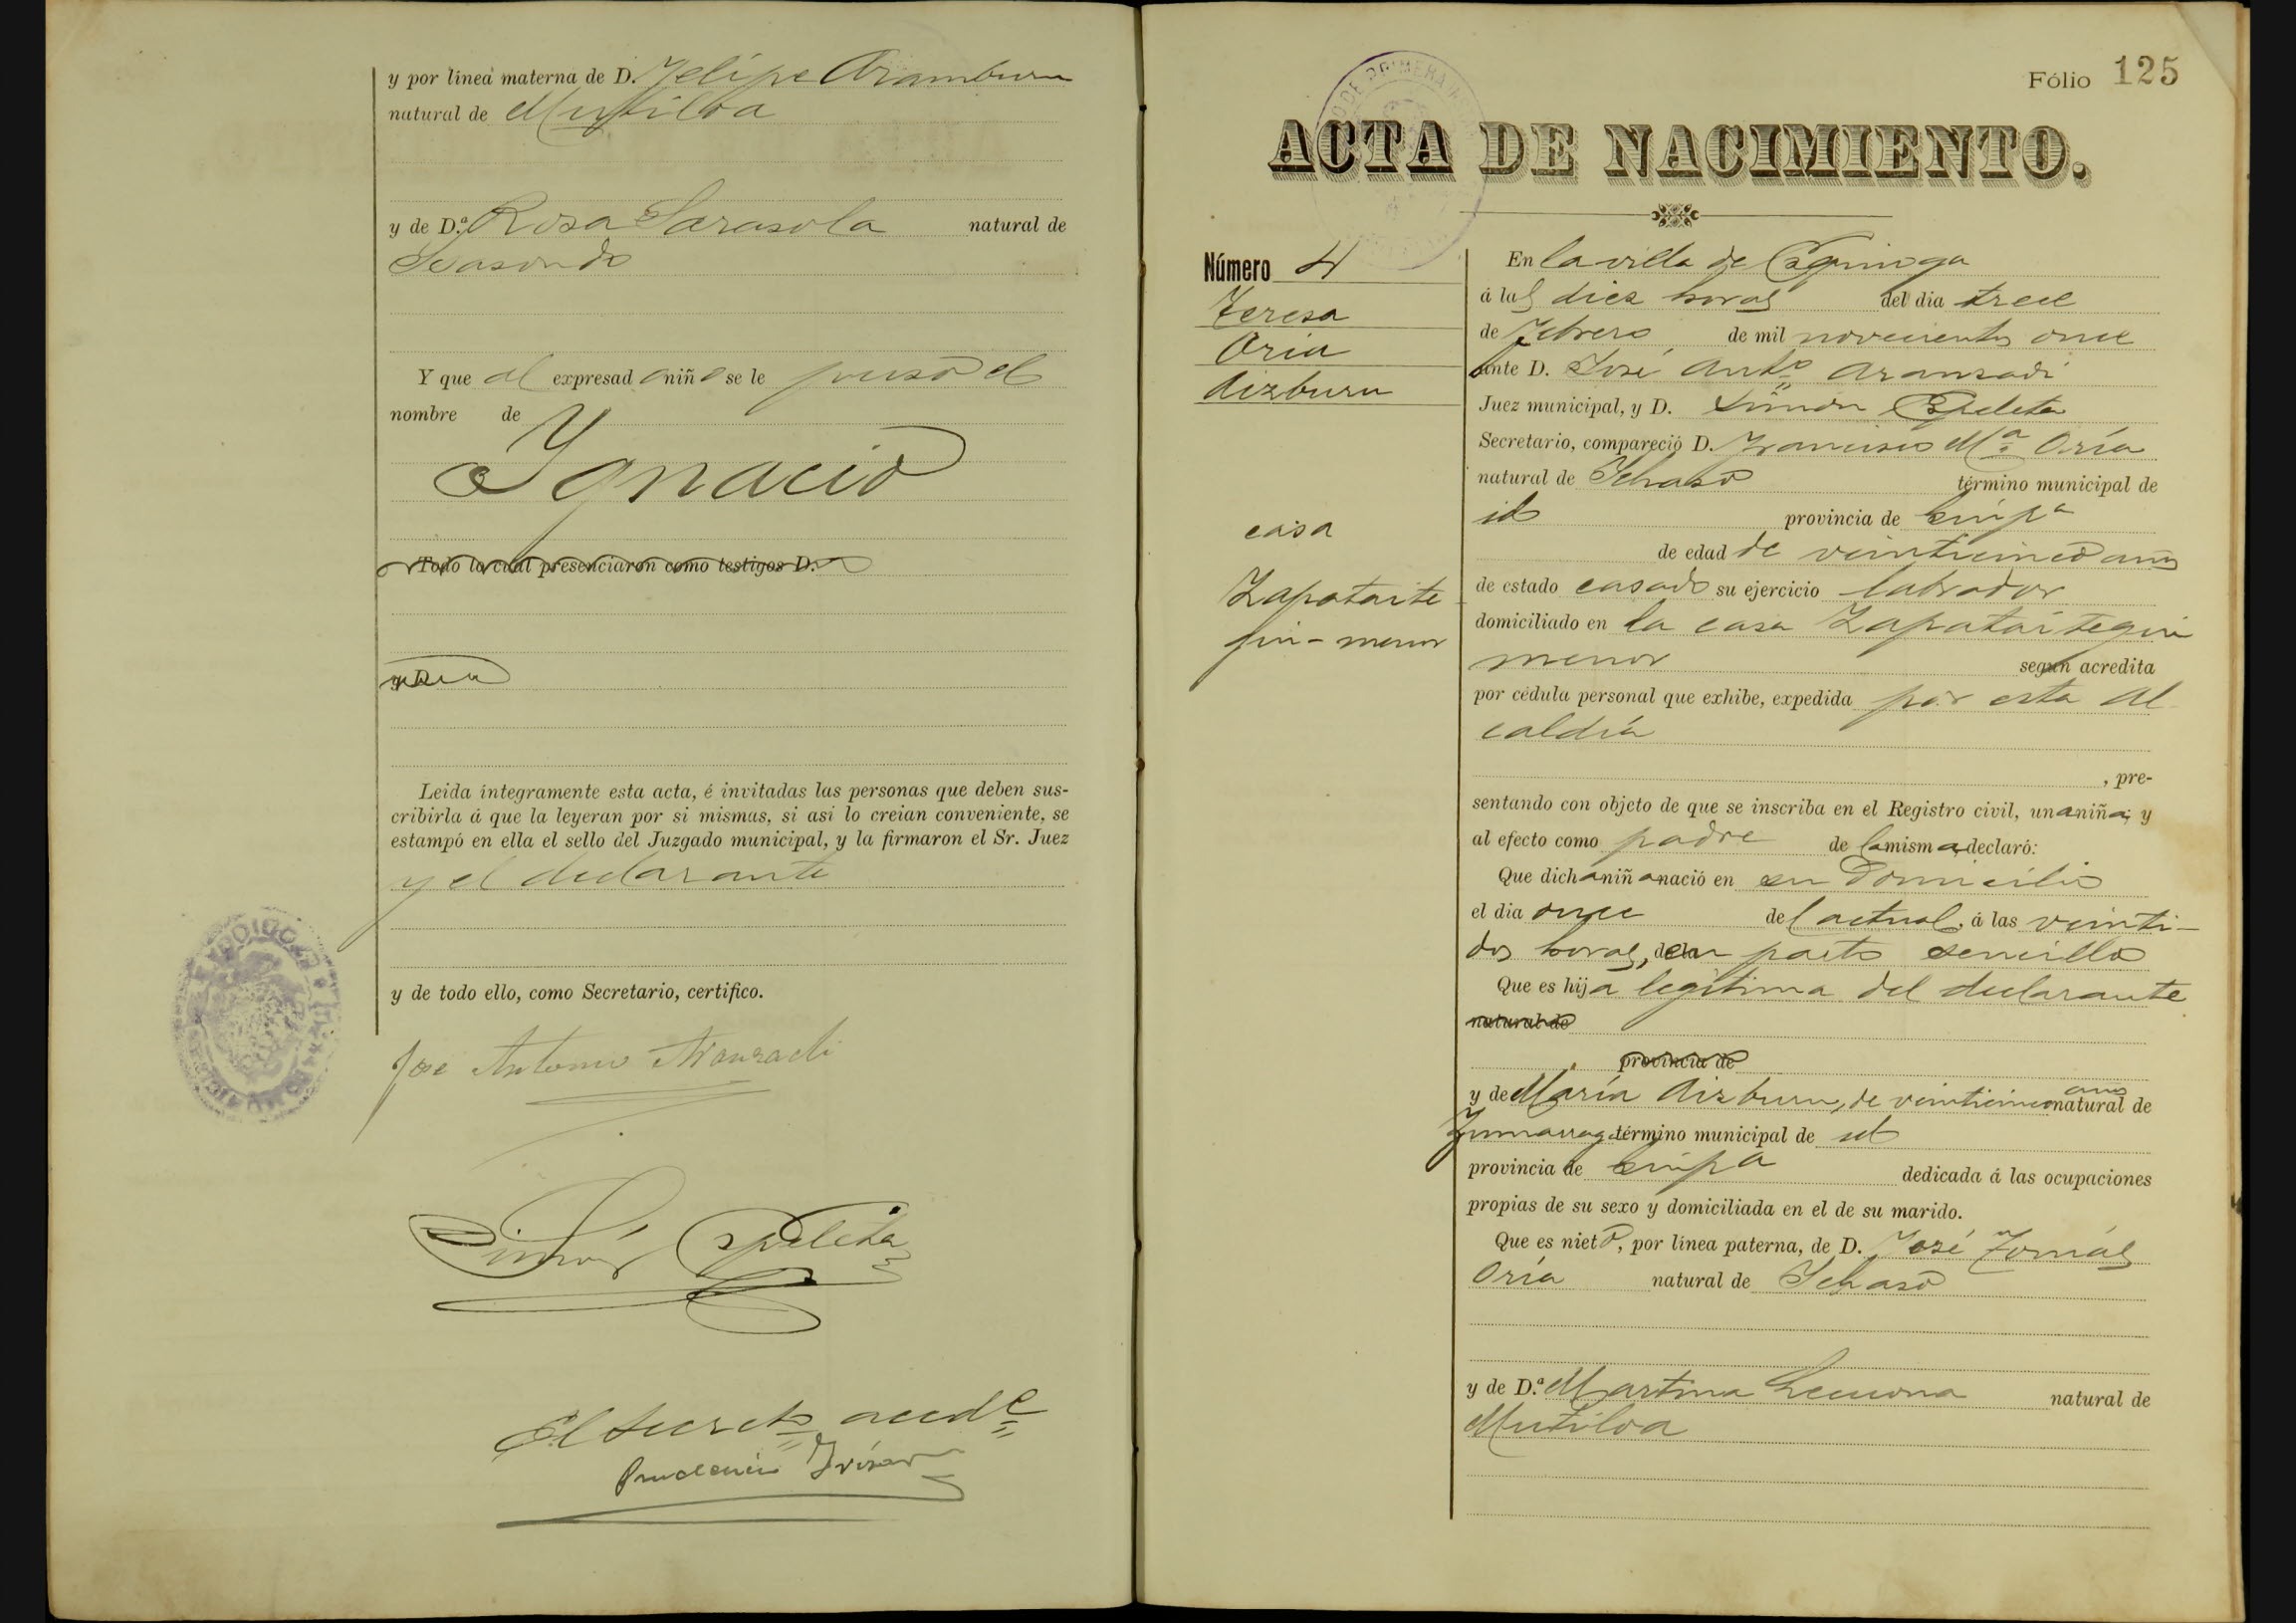 y por línea materna de D. Felipe Aramburu
natural de Mutiloa
y de D.ª Rosa Sarasola natural de
Yva
Y que al expresado niño se le puso el
nombre de
Ygnacio
Todo lo cual presenciaron como testigos D.
y D.
Leida íntegramente esta acta, é invitadas las personas que deben sus-
cribirla á que la leyeran por si mismas, si asi lo creian conveniente, se
estampó en ella el sello del Juzgado municipal, y la firmaron el Sr. Juez
y el declarante
y de todo ello, como Secretario, certifico.
Jose Antonio Aranzadi
Simón Ezpeleta
El Secreto accdl
Prudencio Irízar
Fólio 125
ACTA DE NACIMIENTO.
Número 4
Teresa
Oria
Aizburu
casa
Zapatarite
gui-menor
En la villa de Ezquioga
á las diez horas del dia trece
de Febrero de mil novecientos once
ante D. José Antº Aranzadi
Juez municipal, y D. Simón Ezpeleta
Secretario, compareció D. Francisco Mª Oría
natural de Ichaso término municipal de
id provincia de Guipª
de edad de veinticinco años
de estado casado su ejercicio labrador
domiciliado en la casa Zapataritegui
menor según acredita
por cédula personal que exhibe, expedida por esta Al
caldía
, pre-
sentando con objeto de que se inscriba en el Registro civil, una niña; y
al efecto como padre de la misma declaró:
Que dicha niña nació en su domicilio
el dia once del actual, á las veinti-
dos horas, de un parto sencillo
Que es hija legítima del declarante
natural de
provincia de
y de María Aizburu, de veinticinco años natural de
Zumarraga término municipal de id
provincia de Guipª dedicada á las ocupaciones
propias de su sexo y domiciliada en el de su marido.
Que es nieto, por línea paterna, de D. José Tomás
Oría natural de Ichaso
y de D.ª Martina Lecuona natural de
Mutiloa